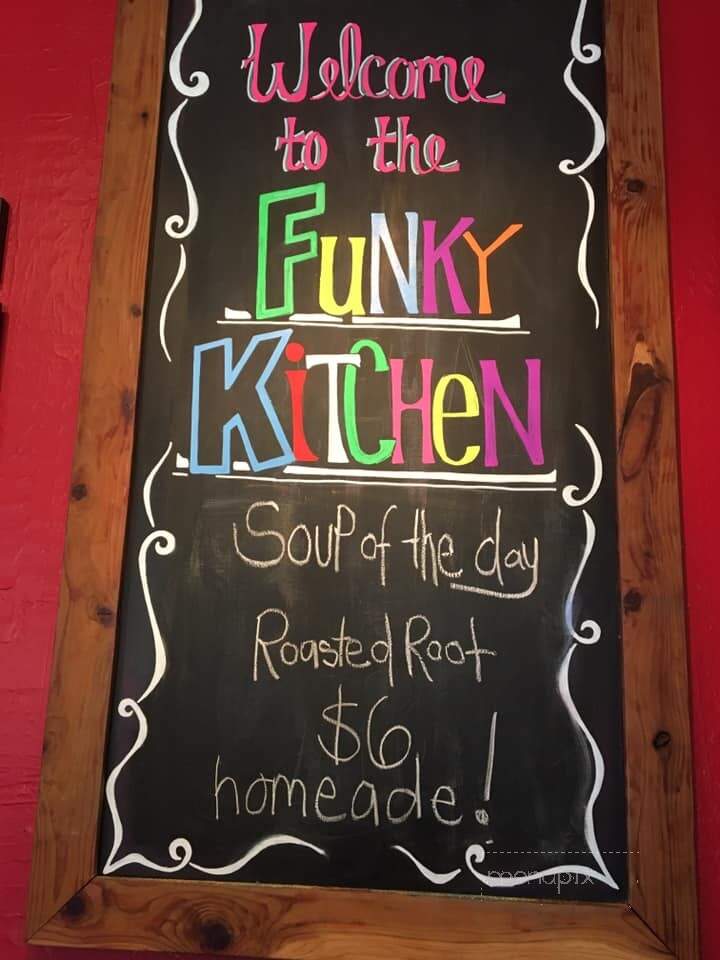 Welcome
to the
FuNKY
KiTCHeN
Soup of the day
Roasted Root
$6
homeade!
menupix